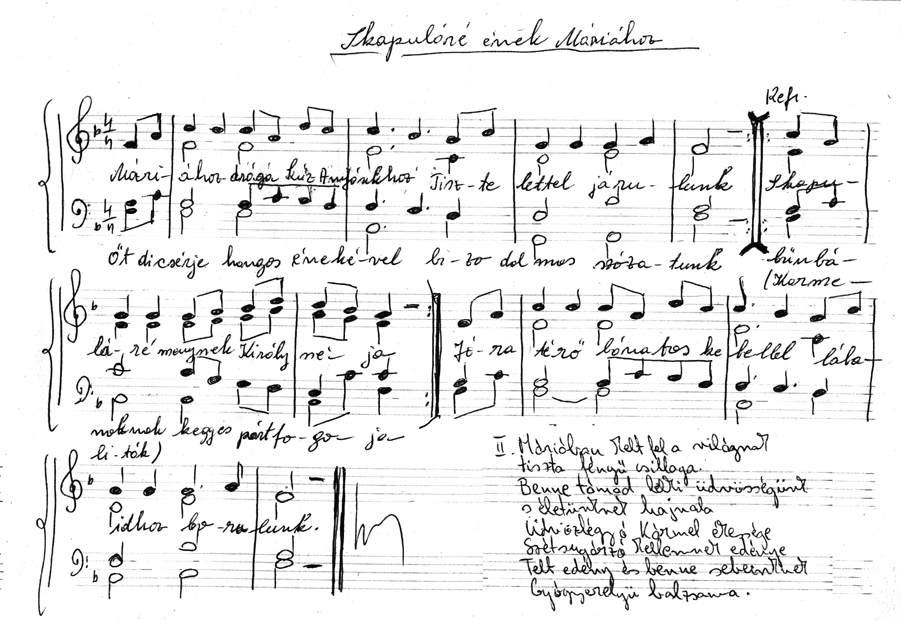 Skapuláré ének Máriához
Refr.
Mári- ához drága szűz Anyánkhoz Tisz-te lettel járu- lunk Skapu-
Őt dicsérje hangos éneké-vel bi-zo dal mas szóza-tunk bűnbá-
(Karme-
lá-ré menynek Király né- ja Jó-ra térő bánatos ke bellel lába-
noknak kegyes pártfo-go- ja
li-ták)
idhoz bo-ru-lunk.
II. Máriában kelt fel a világnak
tiszta fényű csillaga.
Benne támad léti üdvösségünk
s életünknek hajnala
Üdvözlégy ó Kármel ékessége
Szétsugárzó kellemnek edénye
Telt edény és benne sebeinknek
Gyógyerejű balzsama.